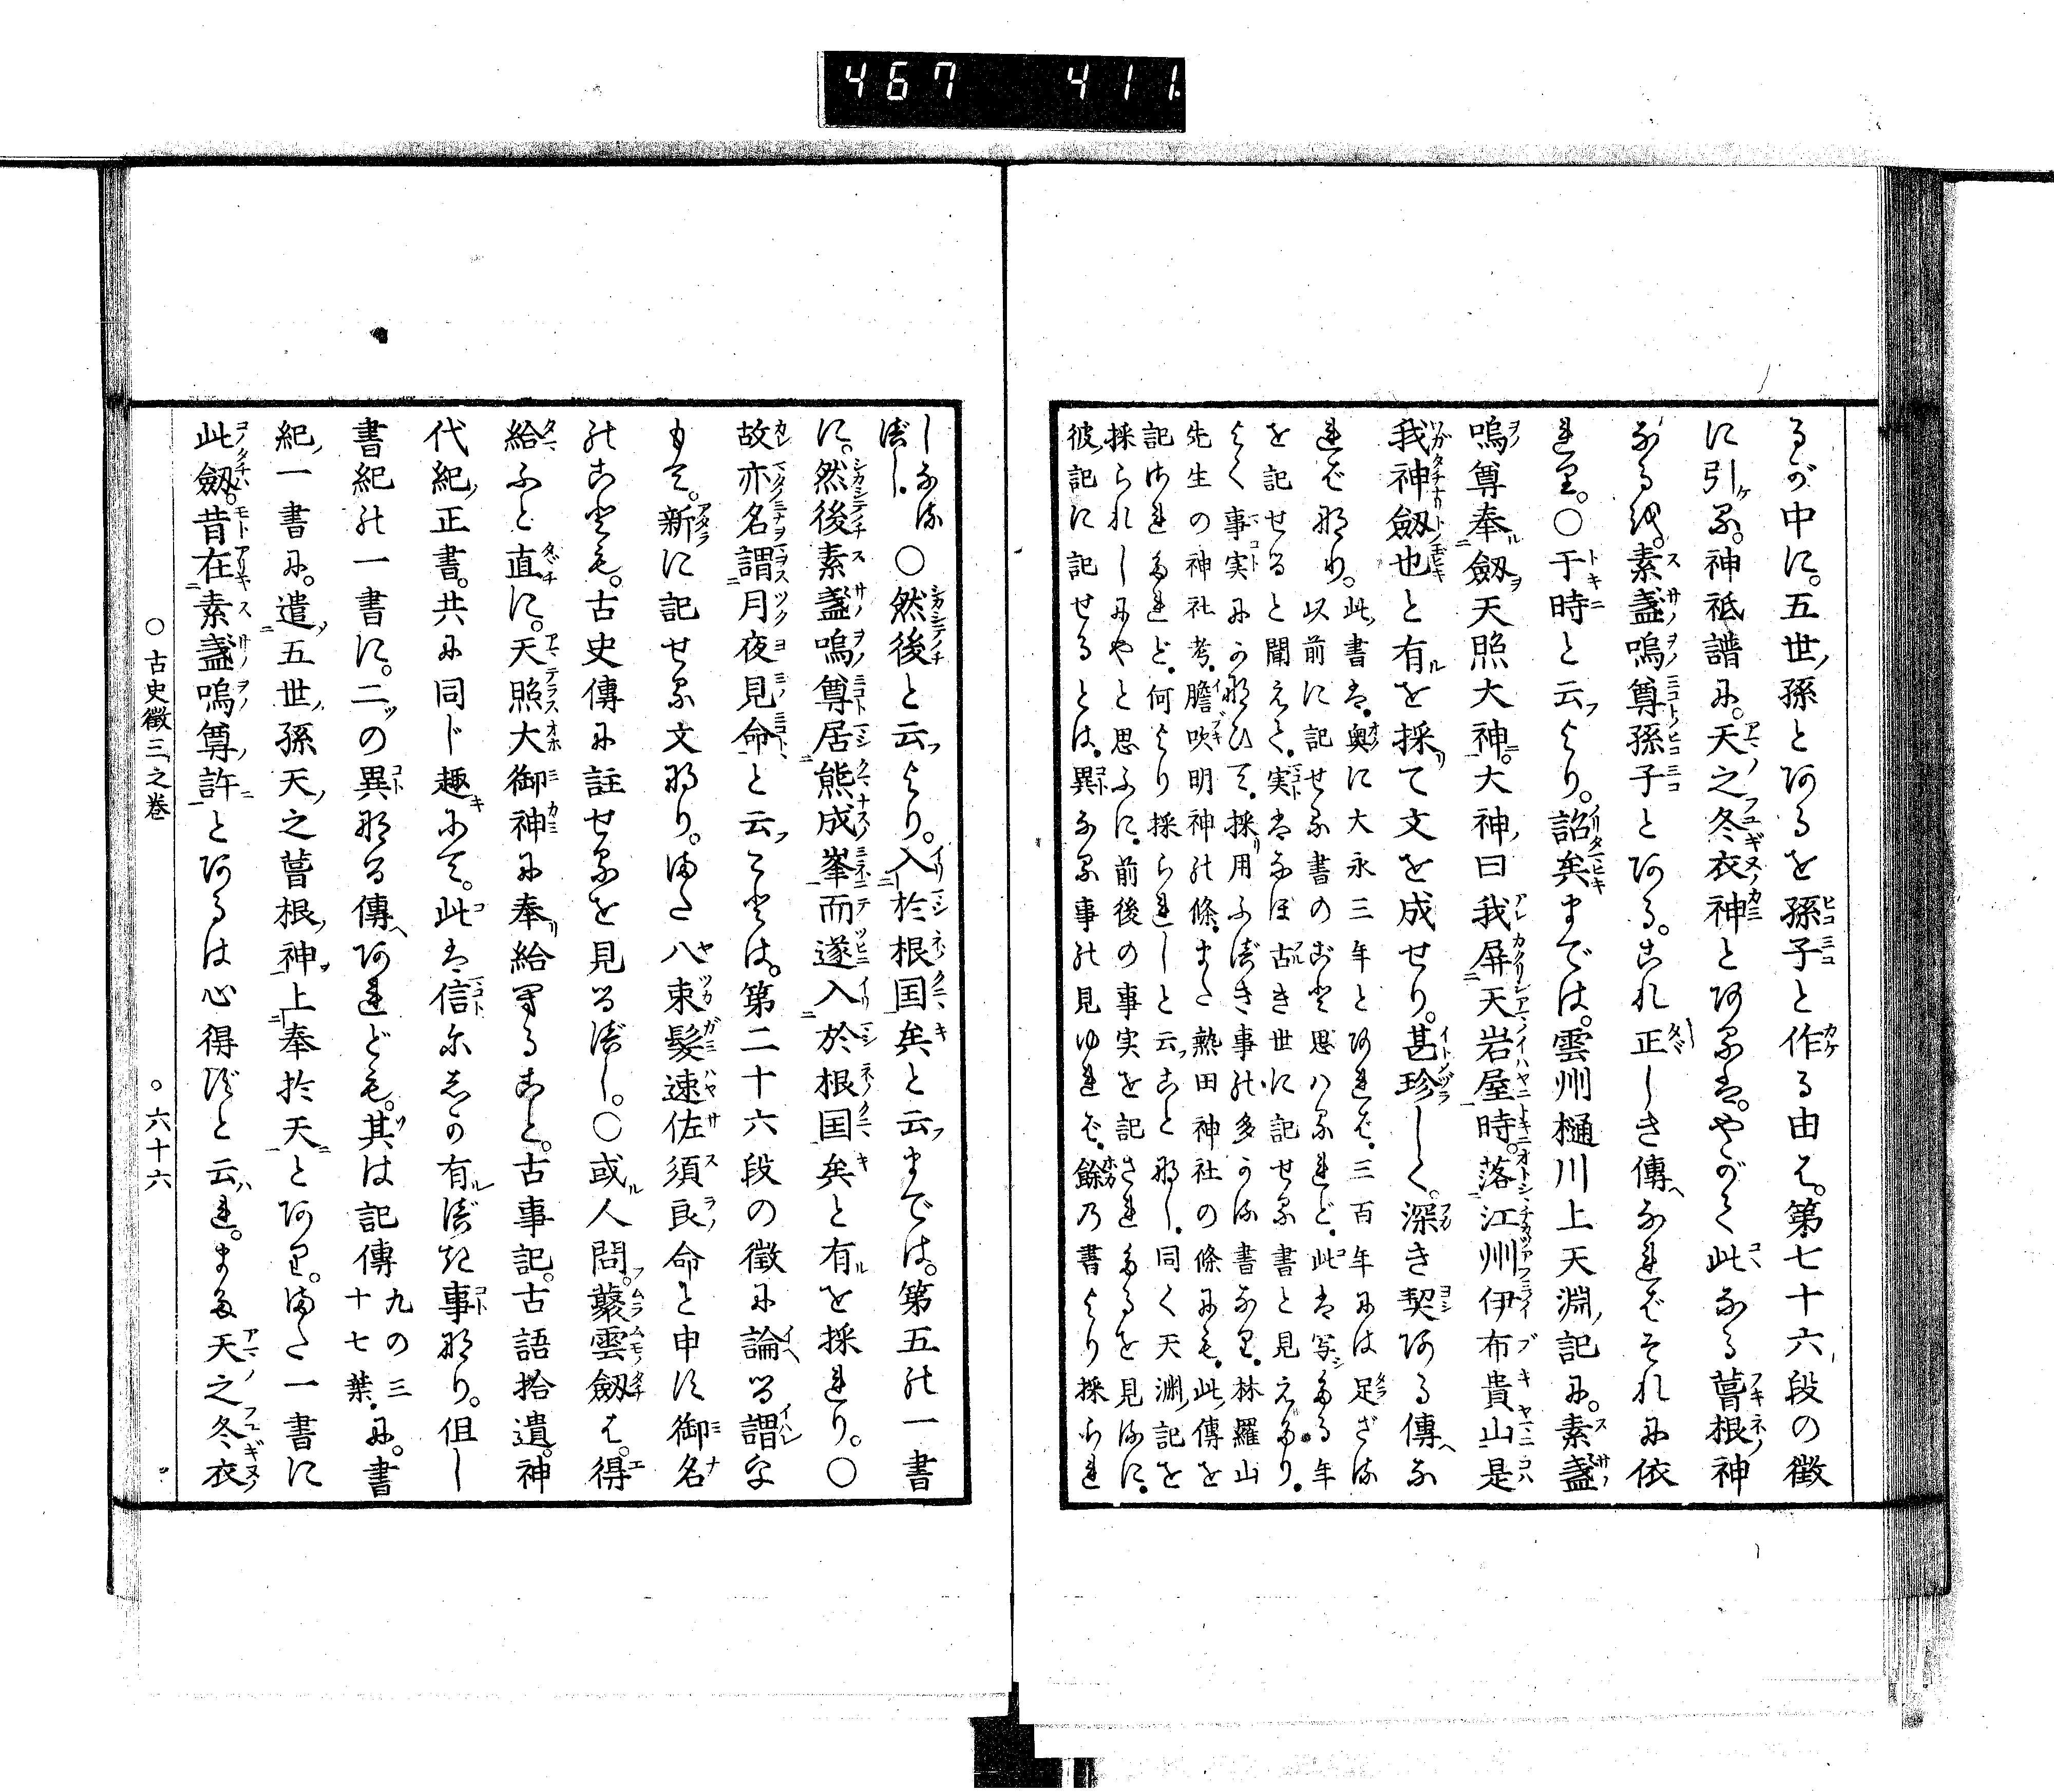 467 411
るが中に。五世ノ孫とあるを孫子と作る由は。第七十六段の徴
に引ケる。神祇譜に。天之冬衣神とあるは。やがて此なる葺根神
なるを。素盞嗚尊孫子とある。これ正しき傳へなればそれに依
れり。○于時と云フより。詔矣までは。雲州樋川上天淵ノ記に。素盞
嗚尊奉ル劔ヲ天照大神。大神ノ曰我屏天岩屋時。落江州伊布貴山是
我神劔也と有ルを採リて文を成せり。甚珍しく。深き契ある傳へな
ればなり。此ノ書は。奥に大永三年とあれば。三百年には足ざる
以前に記せる書のごと思ハるれど。此は写シたる年
を記せると聞えて。実はなほ古き世に記せる書と見えたり。
よく事実にかなひて。採リ用ふべき事の多かる書なり。林羅山
先生の神社考。膽吹明神の條。また熱田神社の條にも。此ノ傳を
記されたれど。何より採られしと云フこと無し。同く天淵ノ記を
採られしにやと思ふに。前後の事実を記されたるを見るに。
彼ノ記に記せるとは。異なる事の見ゆれば。餘乃書より採られ
しなる
べし。○然後と云フより。入於根国矣と云フまでは。第五の一書
に。然後素盞嗚尊居熊成峯而遂入於根国矣と有ルを採れり。○
故亦名謂月夜見命と云フことは。第二十六段の徴に論へる謂字
もて。新に記せる文なり。また八束髪速佐須良命と申す御名
のことも。古史傳に註せるを見るべし。○或ル人問フ。藂雲劔は。得
給ふと直に。天照大御神に奉リ給へること。古事記。古語拾遺。神
代紀ノ正書。共に同じ趣キにて。此は信にしか有ルべき事なり。但し
書紀の一書に。二ツの異なる傳へあれども。其は記傳九の三十七葉。に。書
紀ノ一書に。遣ノ五世ノ孫天ノ之葺根ノ神ヲ上奉於天とあり。また一書に
此劔。昔在素盞嗚尊ノ許ニとあるは心得ずと云ハれ。また天之冬衣
○古史徴三ノ之巻 ○六十六